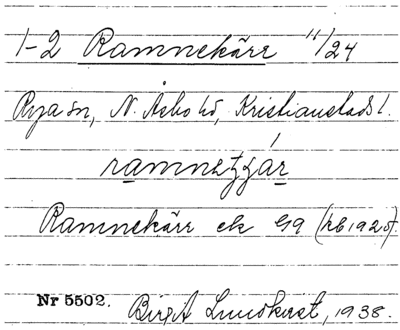 1-2 Ramnekärr 11/24
Rya sn, N. Åsbo hd, Kristianstads l.
Ramnekärr ek 419 (kb 1925).
Nr 5502. Birgit Lundkvist, 1938.